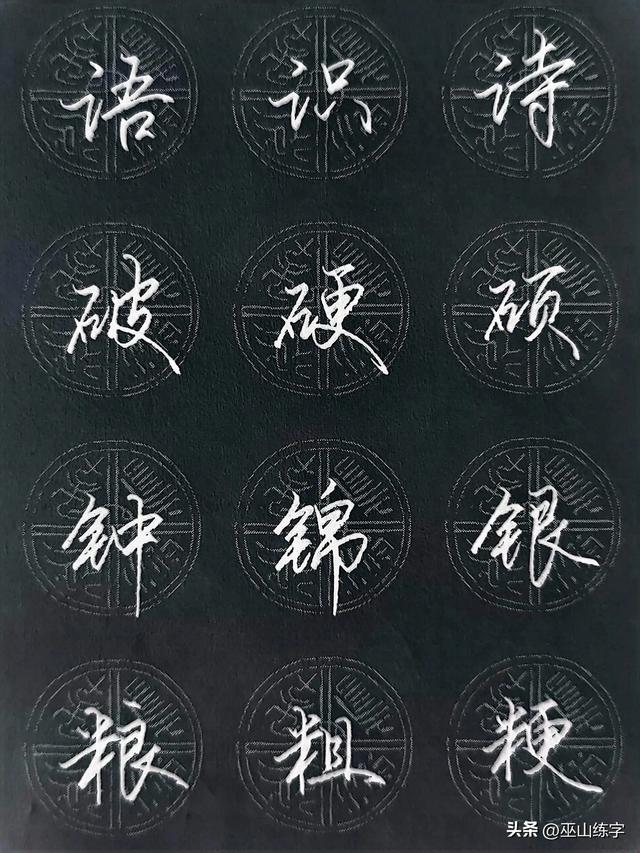 语 识 诗
破 硬 硕
钟 锦 银
粮 粗 粳
头条 @巫山练字